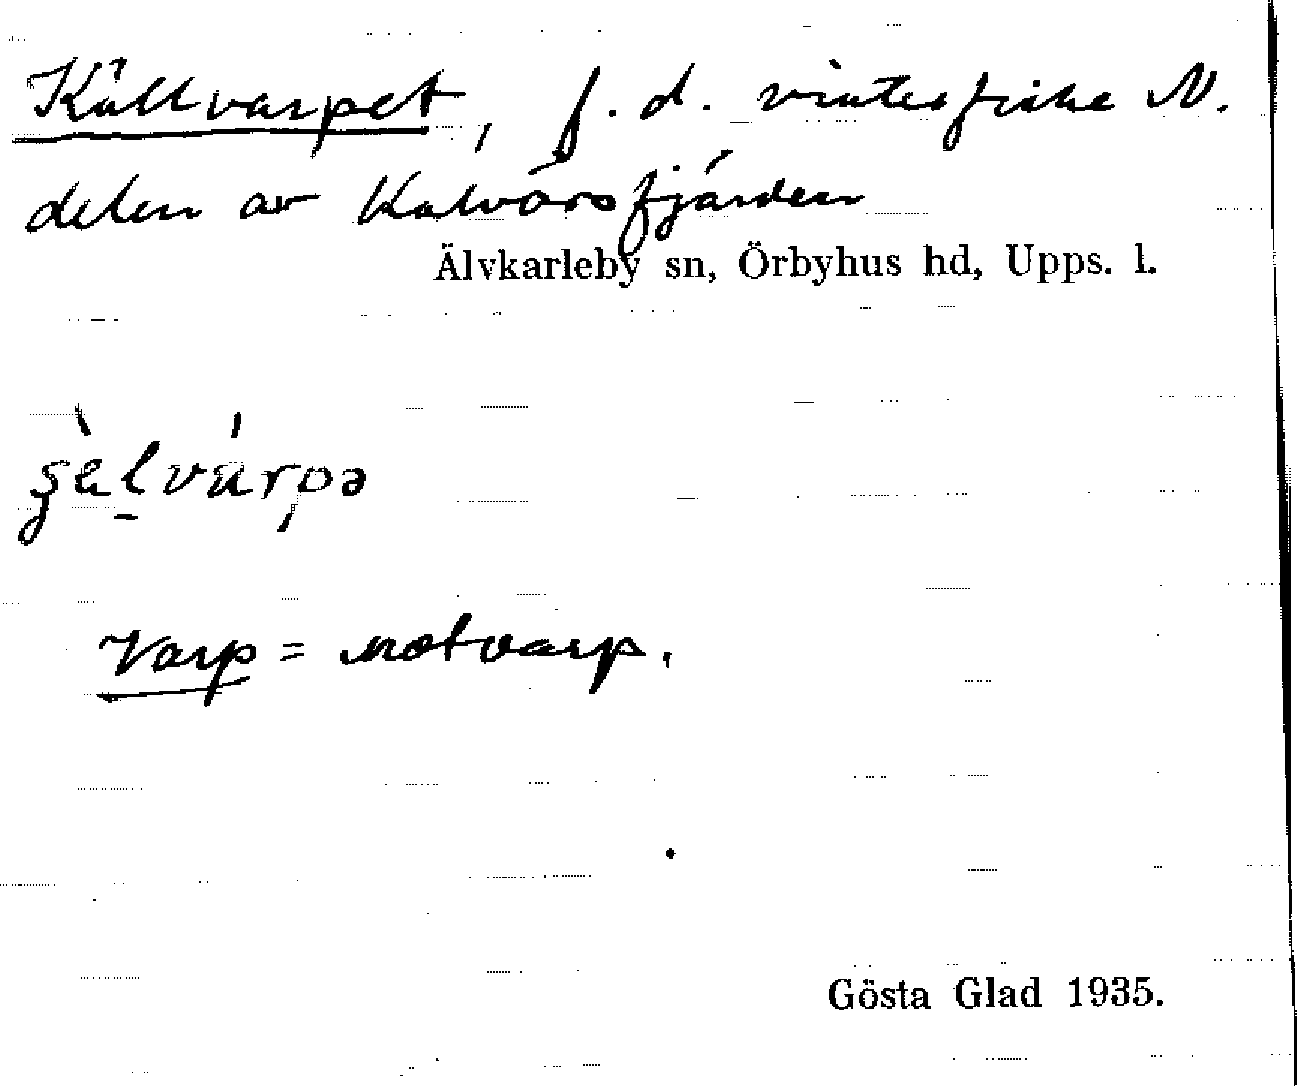 Källvarpet, f. d. vinterfiske N.
delen av Kalvörsfjärden
Älvkarleby sn, Örbyhus hd, Upps. l.
Varp = notvarp.
Gösta Glad 1935.